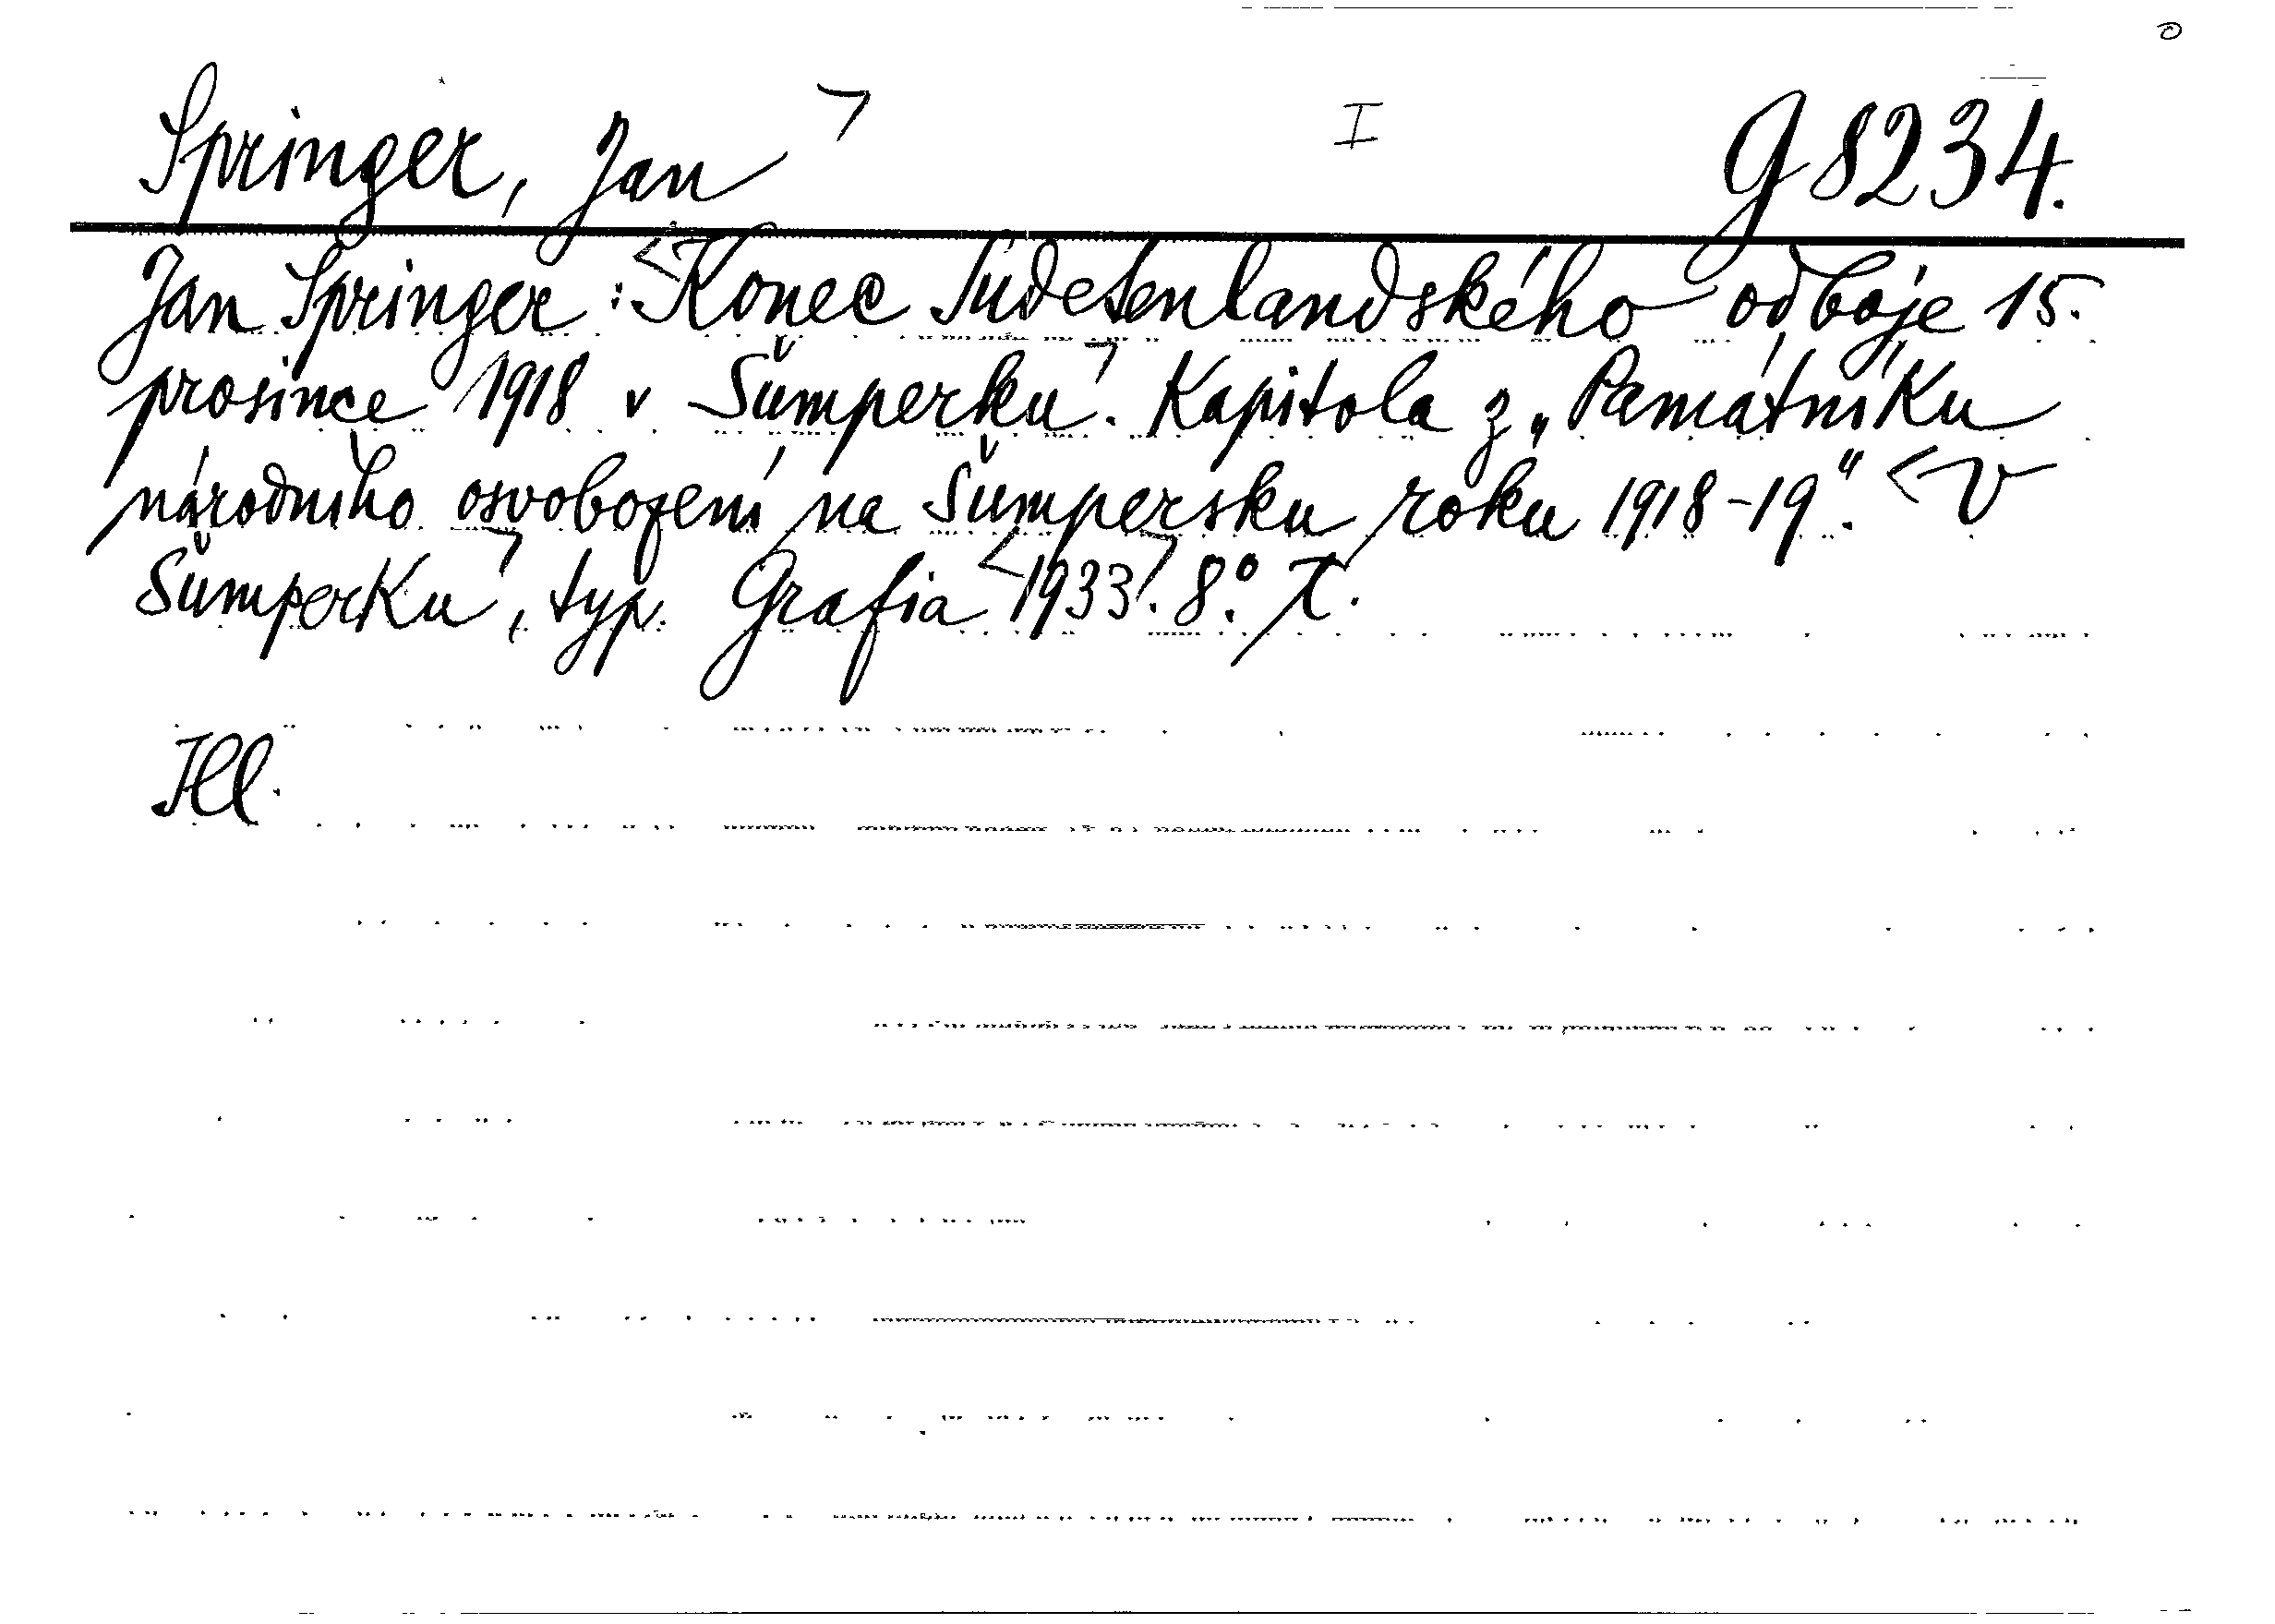 Springer, Jan I G 8234.
Jan Springer: Konec Sudetenlandského odboje 15.
prosince 1918 v Šumperku. Kapitola z „Památníku
národního osvobození na Šumpersku roku 1918-19“. V
Šumperku, typ. Grafia 1933. 8°.
Ill.